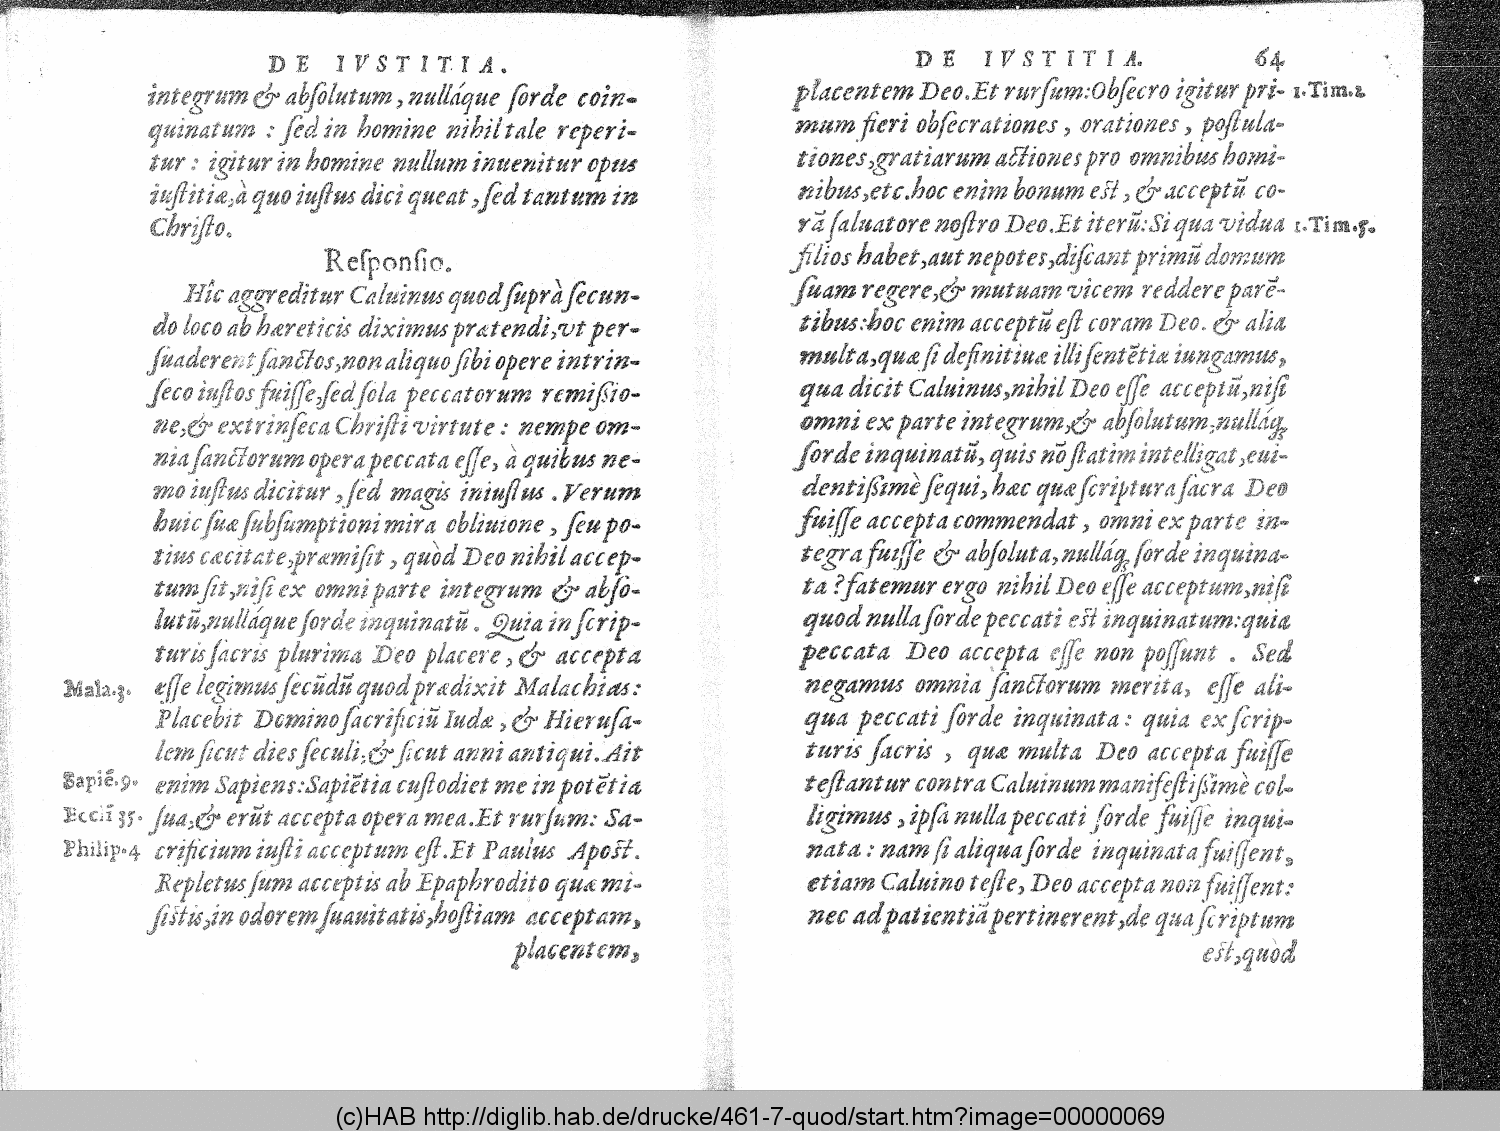 DE IVSTITIA.
integrum & abſolutum, nulláque ſorde coin-
quinatum : ſed in homine nihil tale reperi-
tur : igitur in homine nullum inuenitur opus
iuſtitiæ, à quo iuſtus dici queat, ſed tantum in
Chriſto.
Reſponſio.
Hîc aggreditur Caluinus quod ſuprà ſecun-
do loco ab hæreticis diximus prætendi, vt per-
ſuaderent ſanctos, non aliquo ſibi opere intrin-
ſeco iuſtos fuiſſe, ſed ſola peccatorum remiſſio-
ne, & extrinſeca Chriſti virtute : nempe om-
nia ſanctorum opera peccata eſſe, à quibus ne-
mo iuſtus dicitur, ſed magis iniuſtus. Verum
huic ſuæ ſubſumptioni mira obliuione, ſeu po-
tius cæcitate, præmiſit, quòd Deo nihil accep-
tum ſit, niſi ex omni parte integrum & abſo-
lutũ, nulláque ſorde inquinatũ. Quia in ſcrip-
turis ſacris plurima Deo placere, & accepta
Mala.3. eſſe legimus ſecũdũ quod prædixit Malachias:
Placebit Domino ſacrificiũ Iudæ, & Hieruſa-
lem ſicut dies ſeculi, & ſicut anni antiqui. Ait
Sapiẽ.9. enim Sapiens: Sapiẽtia cuſtodiet me in potẽtia
Eccli 35. ſua, & erũt accepta opera mea. Et rurſum: Sa-
Philip.4 crificium iuſti acceptum eſt. Et Paulus Apoſt.
Repletus ſum acceptis ab Epaphrodito quæ mi-
ſiſtis, in odorem ſuauitatis, hoſtiam acceptam,
placentem,
DE IVSTITIA. 64
placentem Deo. Et rurſum: Obſecro igitur pri- 1.Tim.2
mum fieri obſecrationes, orationes, poſtula-
tiones, gratiarum actiones pro omnibus homi-
nibus, etc. hoc enim bonum eſt, & acceptũ co-
rã ſaluatore noſtro Deo. Et iterũ: Si qua vidua 1.Tim.5.
filios habet, aut nepotes, diſcant primũ domum
ſuam regere, & mutuam vicem reddere parẽ-
tibus: hoc enim acceptũ eſt coram Deo. & alia
multa, quæ ſi definitiuæ illi ſentẽtiæ iungamus,
qua dicit Caluinus, nihil Deo eſſe acceptũ, niſi
omni ex parte integrum, & abſolutum, nullaq́;
ſorde inquinatũ, quis nõ ſtatim intelligat, eui-
dentiſſimè ſequi, hæc quæ ſcriptura ſacra Deo
fuiſſe accepta commendat, omni ex parte in-
tegra fuiſſe & abſoluta, nullaq́; ſorde inquina-
ta? fatemur ergo nihil Deo eſſe acceptum, niſi
quod nulla ſorde peccati eſt inquinatum: quia
peccata Deo accepta eſſe non poſſunt. Sed
negamus omnia ſanctorum merita, eſſe ali-
qua peccati ſorde inquinata: quia ex ſcrip-
turis ſacris, quæ multa Deo accepta fuiſſe
teſtantur contra Caluinum manifeſtiſſimè col-
ligimus, ipſa nulla peccati ſorde fuiſſe inqui-
nata: nam ſi aliqua ſorde inquinata fuiſſent,
etiam Caluino teſte, Deo accepta non fuiſſent:
nec ad patientiã pertinerent, de qua ſcriptum
eſt, quòd
(c)HAB http://diglib.hab.de/drucke/461-7-quod/start.htm?image=00000069